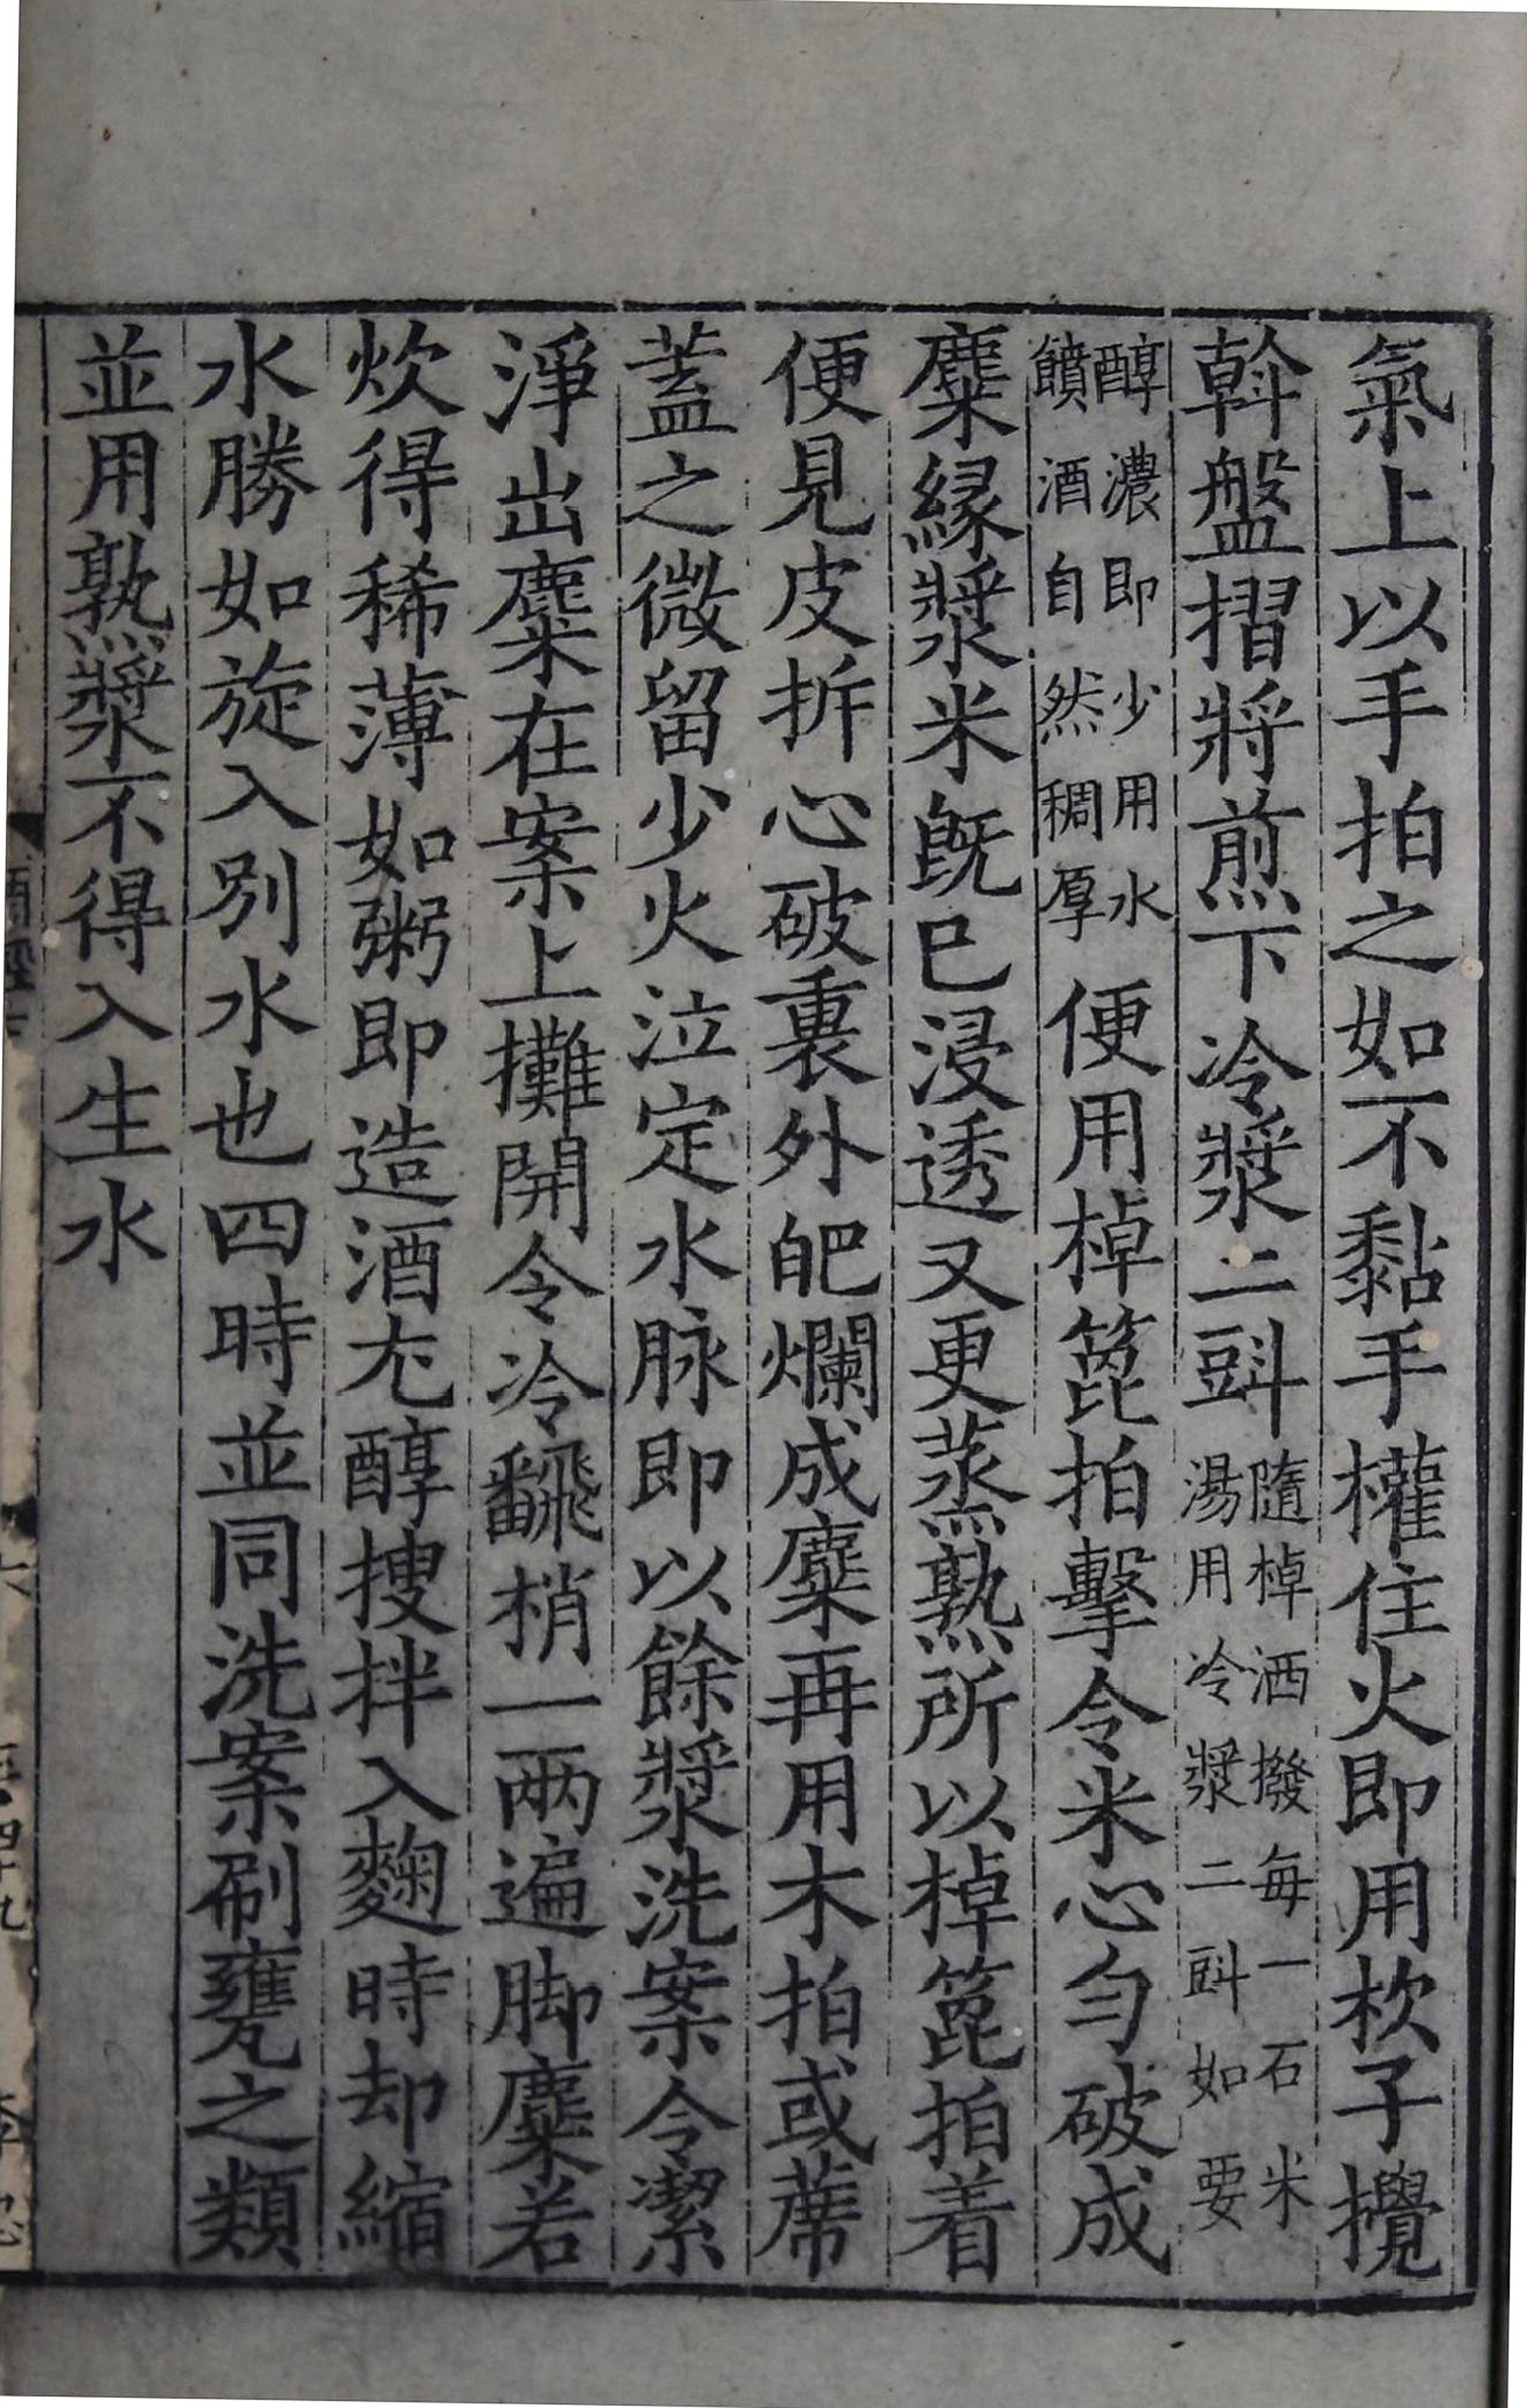 氣上以手拍之如不黏手權住火即用杴子攪
斡盤摺將煎下冷漿二㪷隨棹洒撥每一石米湯用冷漿二㪷如要
醇濃即少用水饙酒自然稠厚便用棹篦拍擊令米心匀破成
麋緣漿米旣巳浸透又更蒸熟所以棹篦拍着
便見皮拆心破裏外䶕爛成麋再用木拍或蓆
蓋之微留少火泣定水脉即以餘漿洗案令潔
淨出麋在案上攤開令冷飜梢一兩遍脚麋若
炊得稀薄如粥即造酒尤醇搜拌入麴時却縮
水勝如旋入別水也四時並同洗案刷甕之類
並用熟漿不得入生水